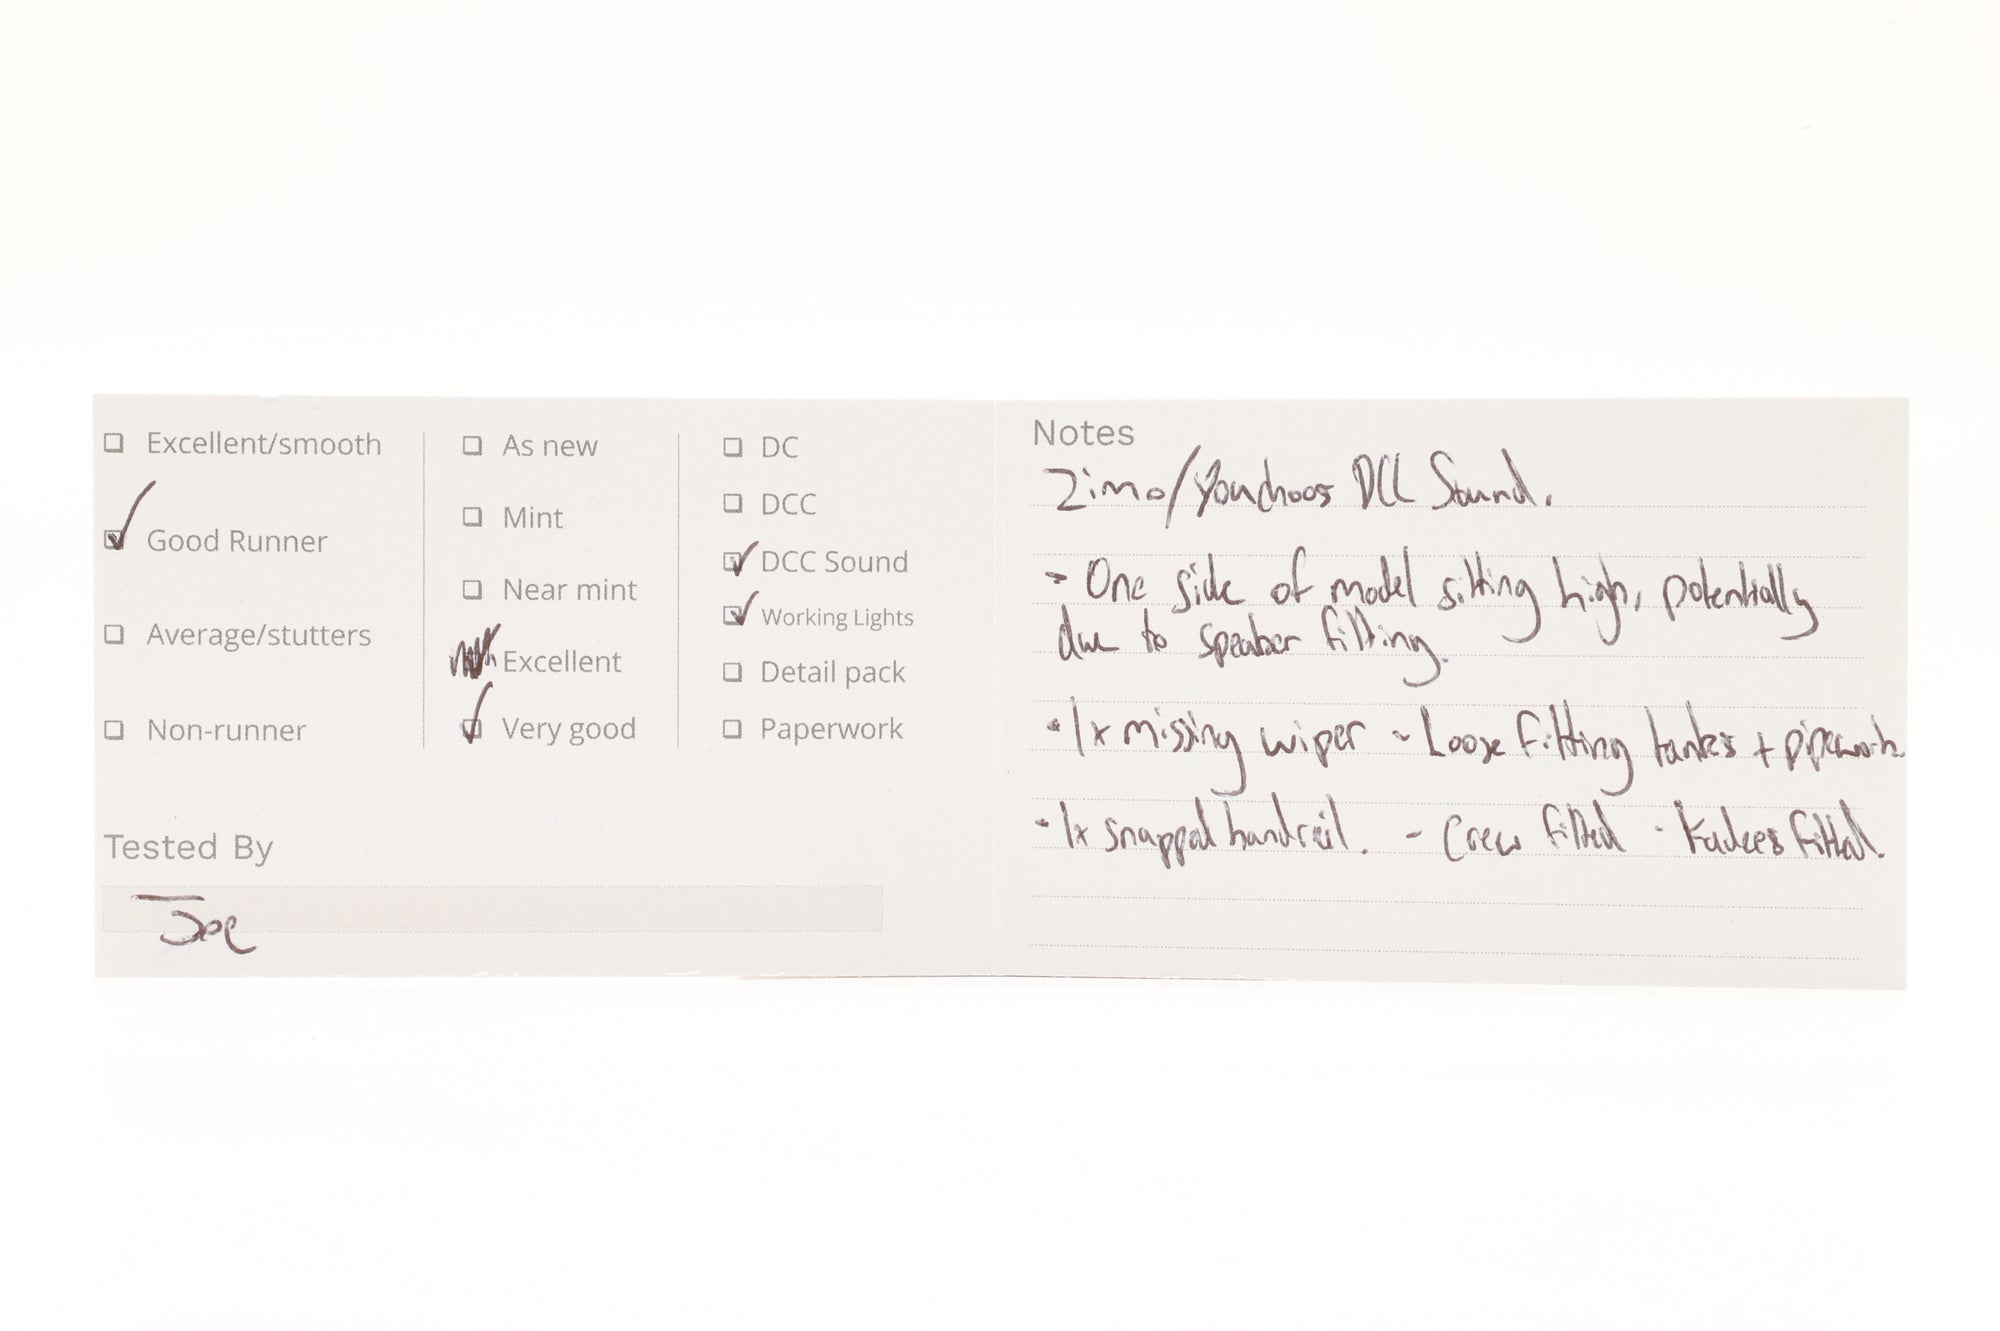 Excellent/smooth
Good Runner
Average/stutters
Non-runner
As new
Mint
Near mint
Excellent
Very good
DC
DCC
DCC Sound
Working Lights
Detail pack
Paperwork
Tested By
Joe
Notes
Zimo/Youchoos DCC Sound.
- One side of model sitting high, potentially
due to speaker fitting.
- 1x missing wiper - Loose fitting tanks + pipework.
- 1x snapped handrail. - Crew fitted - Kadees fitted.